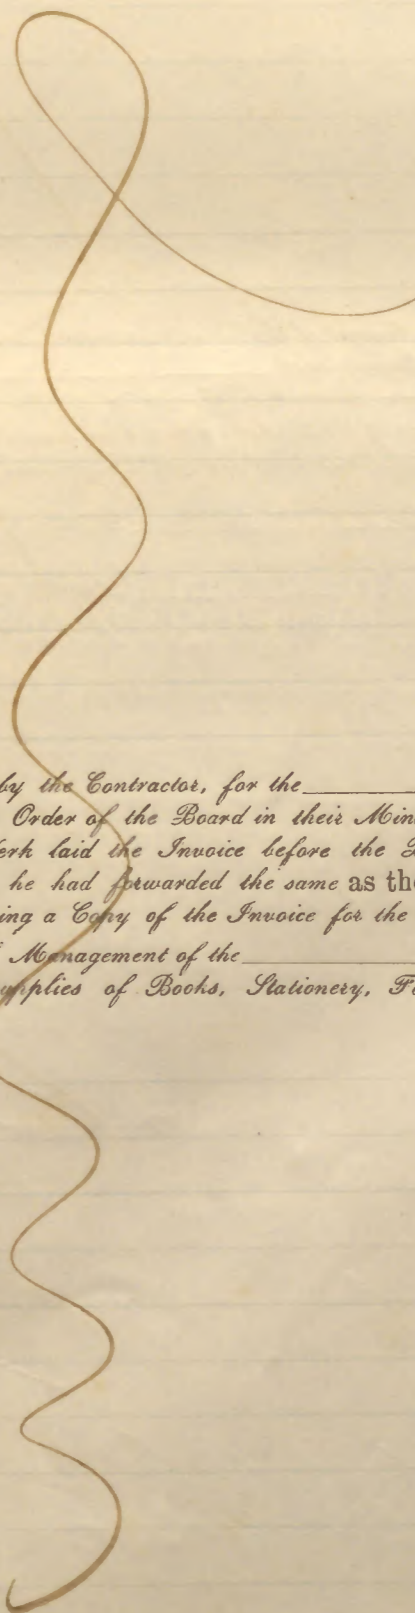 by the Contractor, for the
Order of the Board in their Min
erk laid the Invoice before the
he had forwarded the same as the
ing a Copy of the Invoice for the
Management of the
upplies of Books, Stationery, F